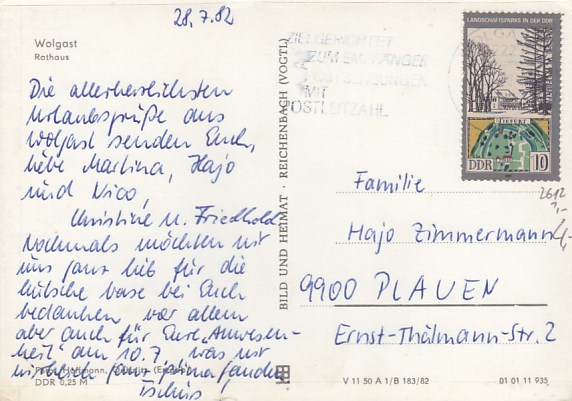 28.7.82
Wolgast
Rathaus
Die allerherzlichsten
Urlaubsgrüße aus
Wolgast senden Euch,
liebe Martina, Hajo
und Nico,
Christine u. Friedhold
Nochmals möchten wir
uns ganz lieb für die
hübsche Vase bei Euch
bedanken vor allem
aber auch für Eure „Anwesen-
heit" am 10.7, was wir
wirklich ganz prima fanden
Tschüß
DDR 0,25 M
BILD UND HEIMAT · REICHENBACH (VOGTL)
ZIELGERICHTET
ZUM EMPFÄNGER
POSTSENDUNGEN
MIT
POSTLEITZAHL
LANDSCHAFTSPARKS IN DER DDR
DDR
10
2612
Familie
Hajo Zimmermann
9900 PLAUEN
Ernst-Thälmann-Str. 2
V 11 50 A 1/B 183/82
01 01 11 935